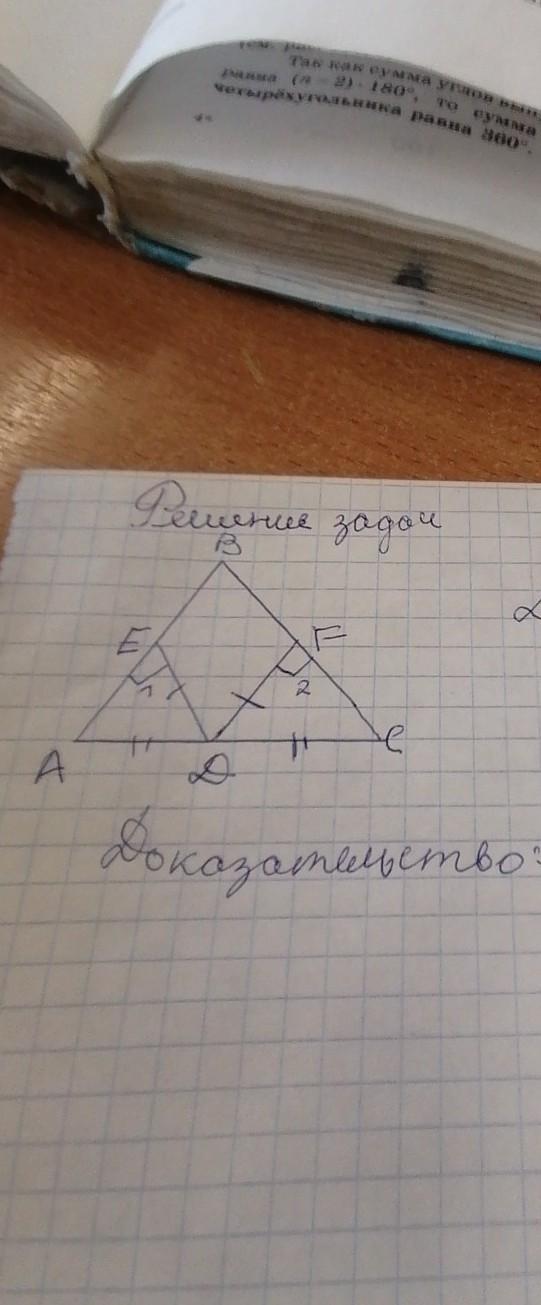 Так как сумма углов вып
равна (n − 2) · 180°, то сумма
четырёхугольника равна 360°.
4*
Решение задач
B
E F
1 2
A D C
Доказательство: